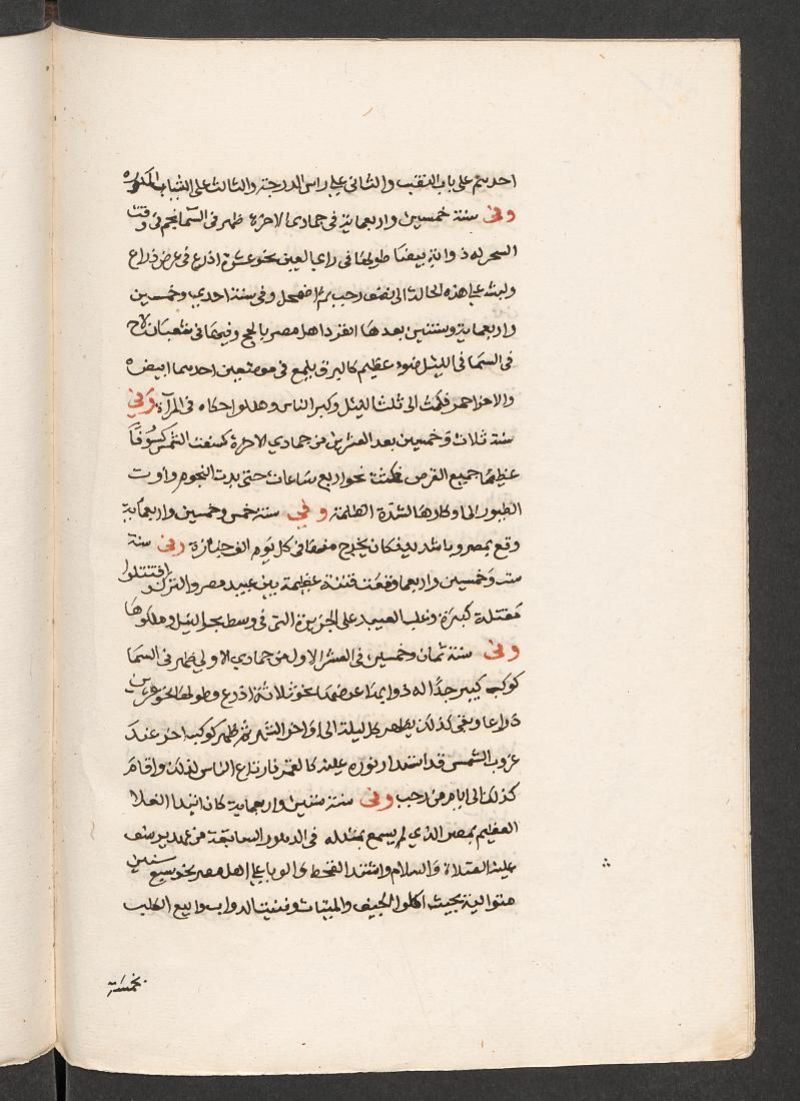 احدهم على باب النقب والثاني على راس الدرجة والثالث على القباب المذكوره
وفي سنة خمسين واربعماية في جمادى الاخرة ظهر في السما نجم في وقت
السحر له ذوابة بيضا طولها في راي العين نحو عشرة اذرع في عرض ذراع
ولبث على هذه الحالة الى نصف رجب ثم اضمحل وفي سنة احدي وخمسين
واربعماية وسنتين بعدها انفرد اهل مصر بالحج وفيها في شعبان لاح
في السما في الليل ضوء عظيم كالبرق يلمع في موضعين احدهما ابيض
والاخر احمر فلمت الى ثلث الليل وكبر الناس وهللوا حكاه في المرآة وفي
سنة ثلاث وخمسين بعد العشرين من جمادي الاخرة كسفت الشمس كسوفا
عظيما جميع القرص فمكثت نحو اربع ساعات حتى بدت النجوم واوت
الطيور الى اوكارها لشدة الظلمة وفي سنة خمس وخمسين واربعماية
وقع بمصر وبا شديد فكان يخرج منها في كل يوم الف جنازة وفي سنة
ست وخمسين واربعماية وقعت فتنة عظيمة بين عبيد مصر والترك واقتتلوا
مقتلة كبيرة وغلب العبيد على الجزيرة التي في وسط بحر النيل وملكوها
وفي سنة ثمان وخمسين في العشر الاول من جمادي الاولي ظهر في السما
كوكب كبير جدا له ذوابة عرضها نحو ثلاثة اذرع وطولها نحو عشرين
ذراعا وبقى كذلك يظهر كل ليلة الى اواخر الشهر ثم ظهر كوكب اخر عند
غروب الشمس قد استدار نوره عليه كالقمر فارتاع الناس لذلك واقام
كذلك الى ايام من رجب وفي سنة ستين واربعماية كان ابتدا الغلا
العظيم بمصر الذي لم يسمع بمثله في الدهور السابقة من عهد يوسف
عليه الصلاة والسلام واشتد القحط والوبا على اهل مصر نحو سبع سنين
متوالية بحيث اكلوا الجيف والميتات وفنيت الدواب وابيع الكلب
بخمسة